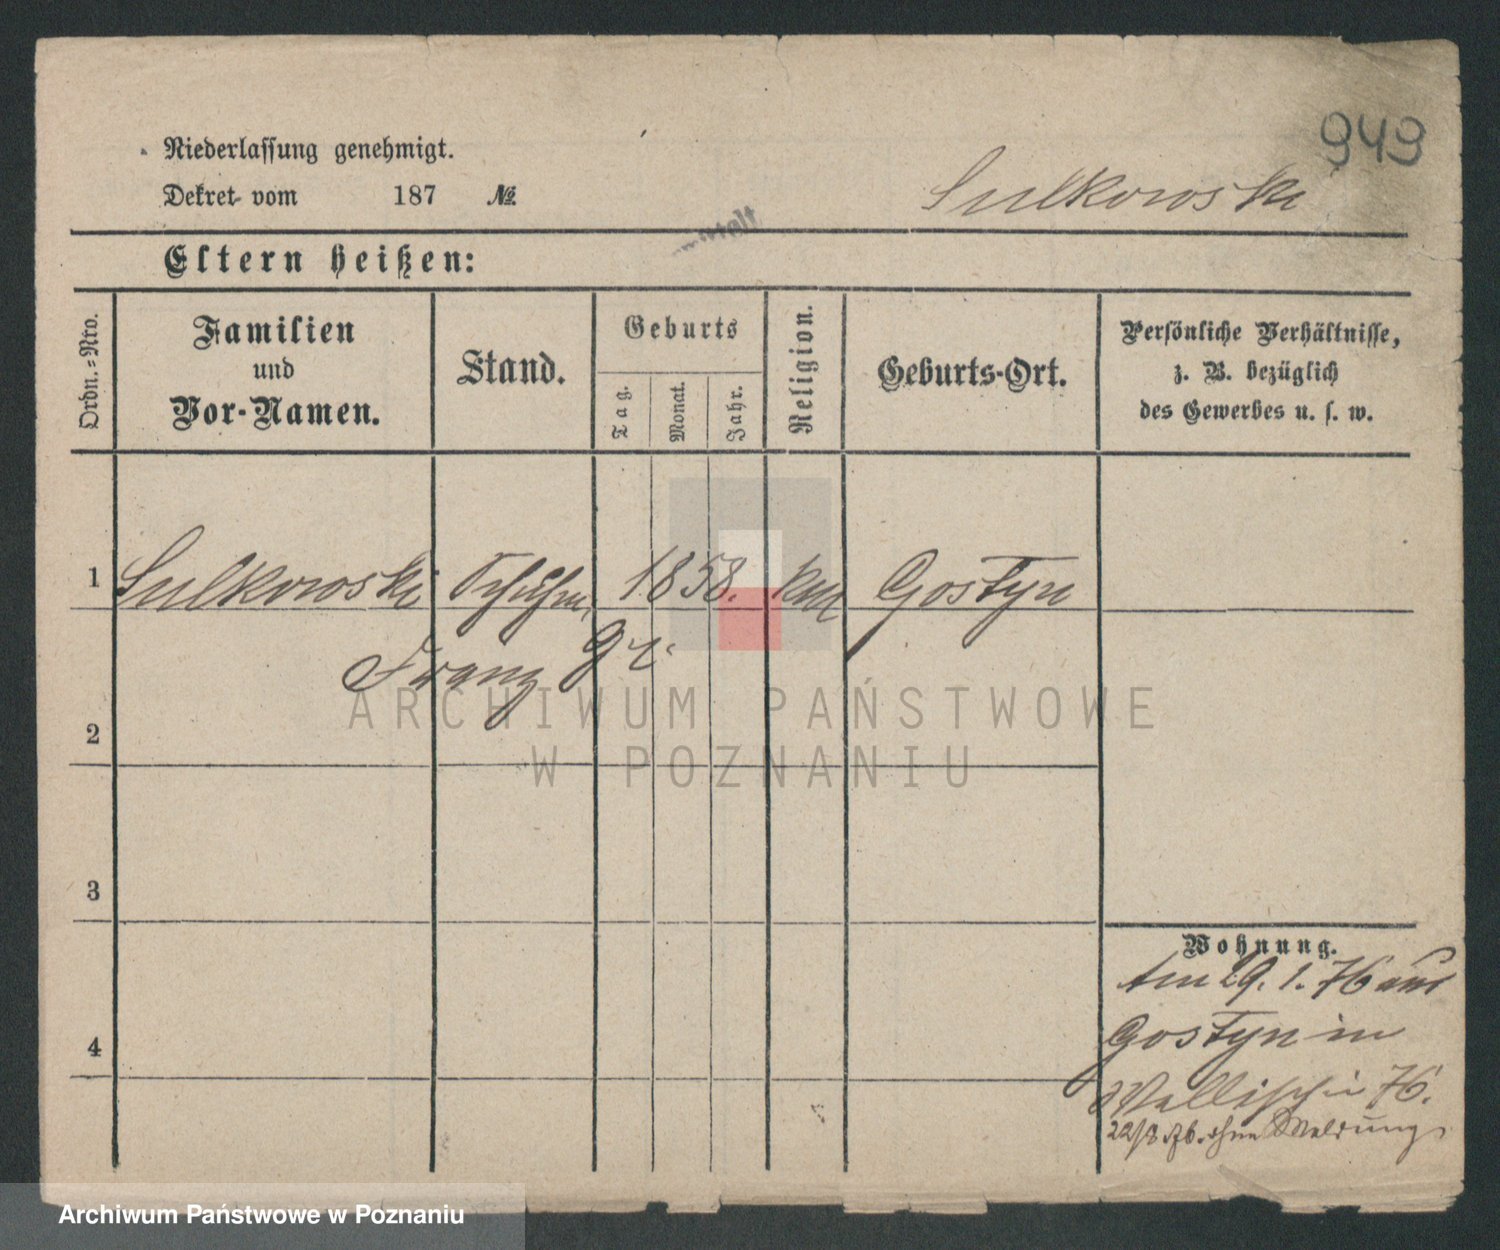 949
Niederlassung genehmigt.
Dekret vom 187 №
Sulkowski
Eltern heißen:
Ordn.-Nro.
Familien und Vor-Namen.
Stand.
Geburts
Tag.
Monat.
Jahr.
Religion.
Geburts-Ort.
Persönliche Verhältnisse,
z. B. bezüglich
des Gewerbes u. s. w.
1 Sulkowski 1858. kath Gostyn
Franz
2
3
4
Wohnung.
Am 29. 1. 76 aus
Gostyn in
Wallischei 76.
22/8 76. ohne Meldung
ARCHIWUM PAŃSTWOWE
W POZNANIU
Archiwum Państwowe w Poznaniu